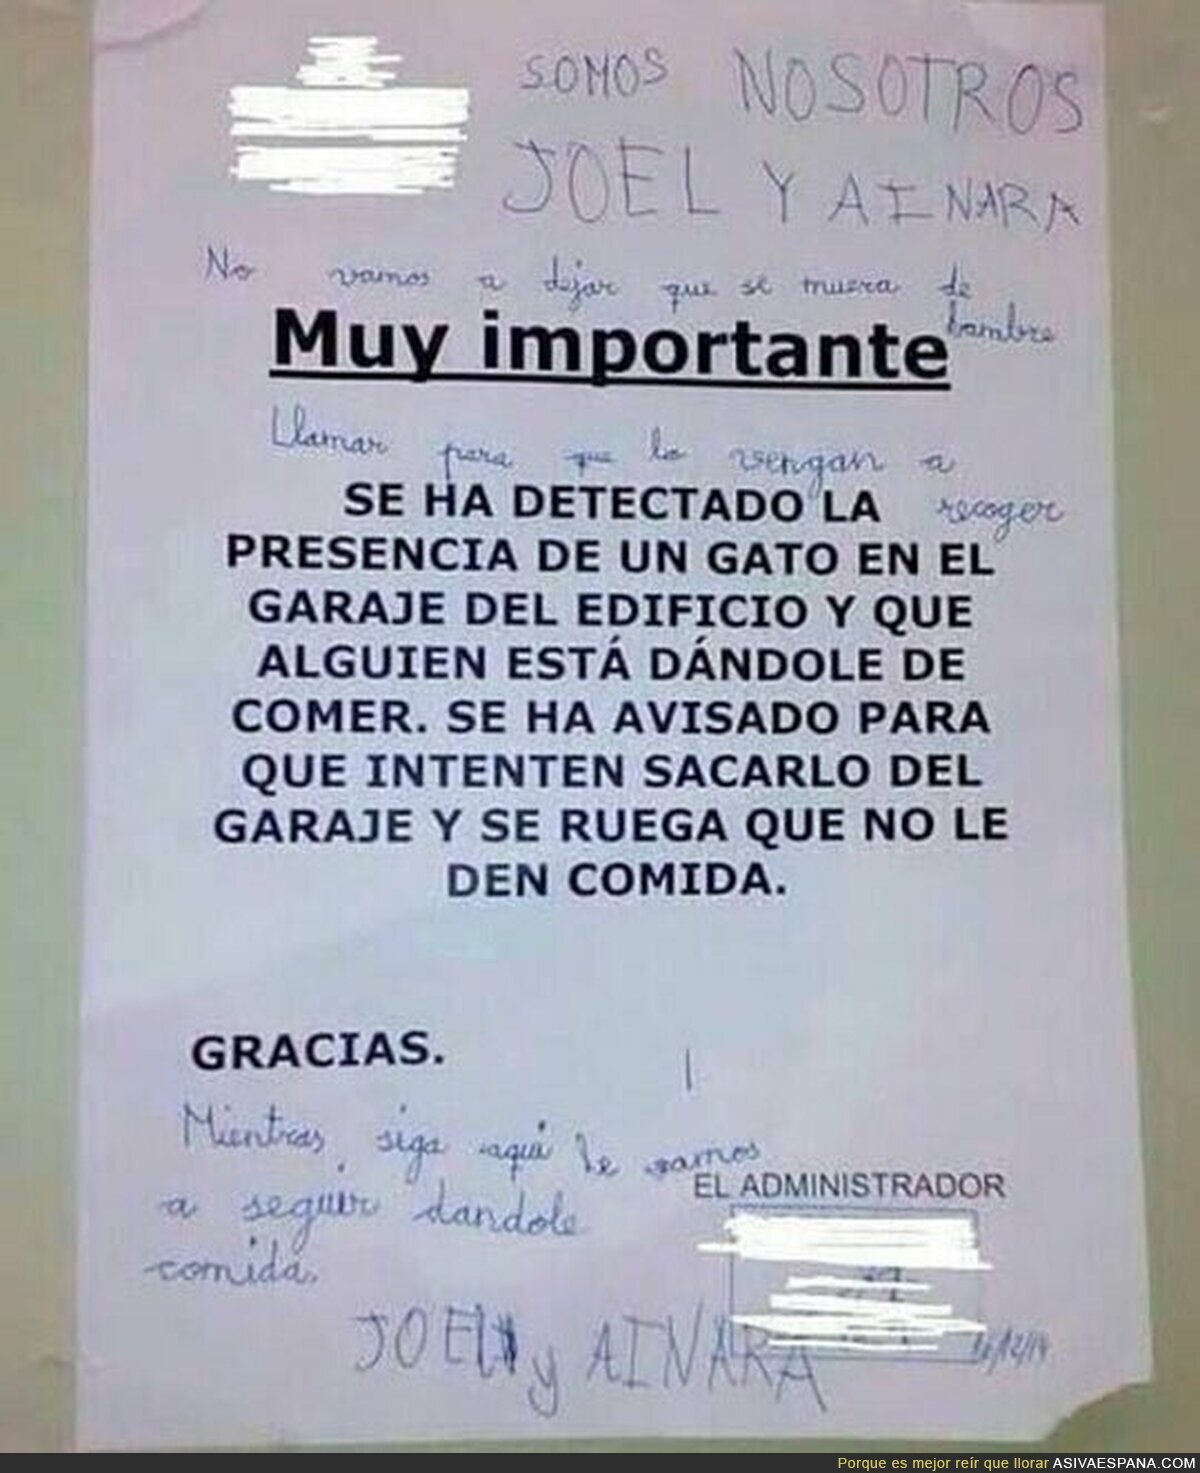 SOMOS NOSOTROS
JOEL Y AINARA
No vamos a dejar que se muera de
hambre
Muy importante
Llamar para que lo vengan a
recoger
SE HA DETECTADO LA
PRESENCIA DE UN GATO EN EL
GARAJE DEL EDIFICIO Y QUE
ALGUIEN ESTÁ DÁNDOLE DE
COMER. SE HA AVISADO PARA
QUE INTENTEN SACARLO DEL
GARAJE Y SE RUEGA QUE NO LE
DEN COMIDA.
GRACIAS.
Mientras siga aquí le vamos
a seguir dandole
comida.
EL ADMINISTRADOR
JOEL y AINARA
Porque es mejor reír que llorar ASIVAESPANA.COM